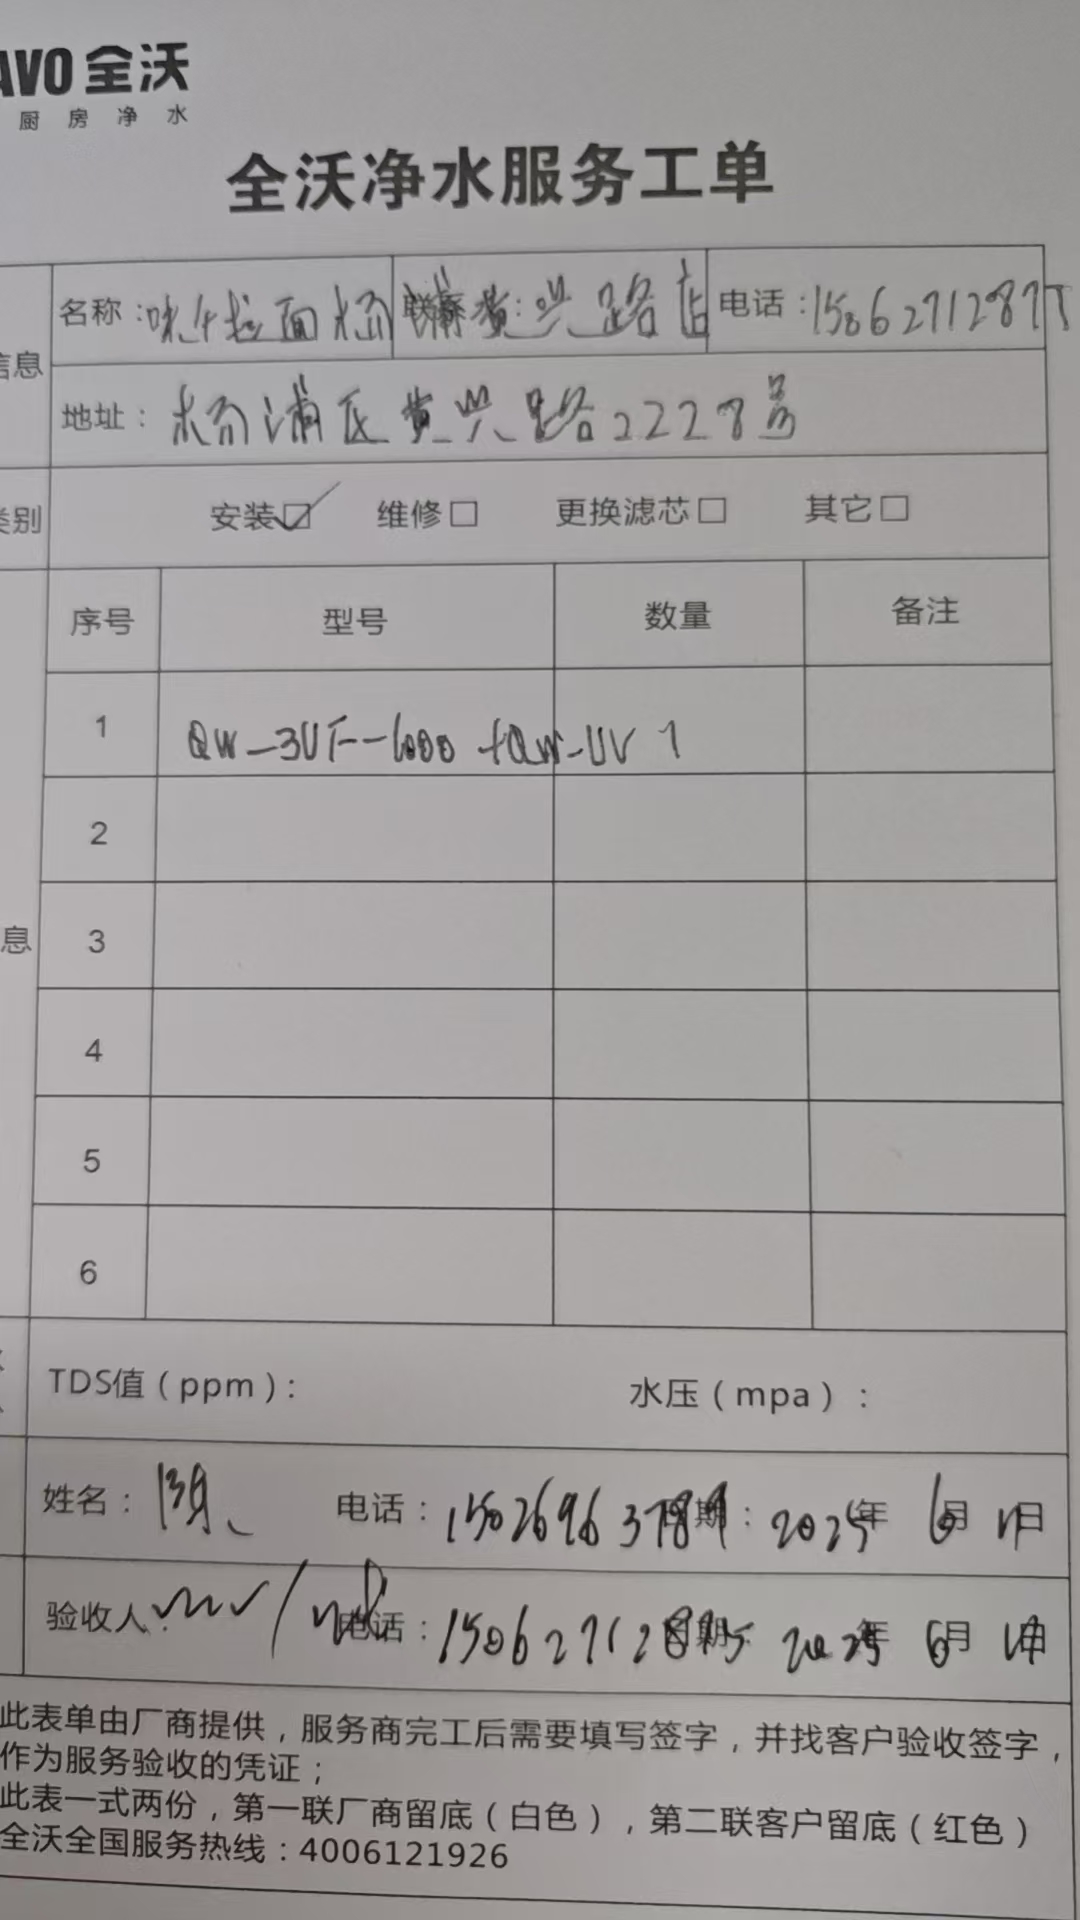 AVO 全沃
厨房净水
全沃净水服务工单
信息
名称：味千拉面杨浦黄兴路店 电话：15062712875
地址：杨浦区黄兴路2228号
类别 安装☑ 维修□ 更换滤芯□ 其它□
序号 型号 数量 备注
1 QW-3UF-1000+QW-UV 1
2
息 3
4
5
6
TDS值（ppm）： 水压（mpa）：
姓名：陈 电话： 日期：2025年6月11日
验收人： 电话：15062712875 日期：2025年6月11日
此表单由厂商提供，服务商完工后需要填写签字，并找客户验收签字，
作为服务验收的凭证；
此表一式两份，第一联厂商留底（白色），第二联客户留底（红色）
全沃全国服务热线：4006121926